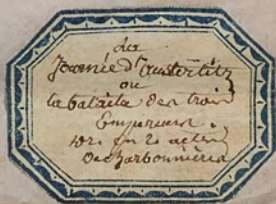 La
Journée d'Austerlitz
ou
la bataille des trois
Empereurs.
en 2 actes
De Charbonnières